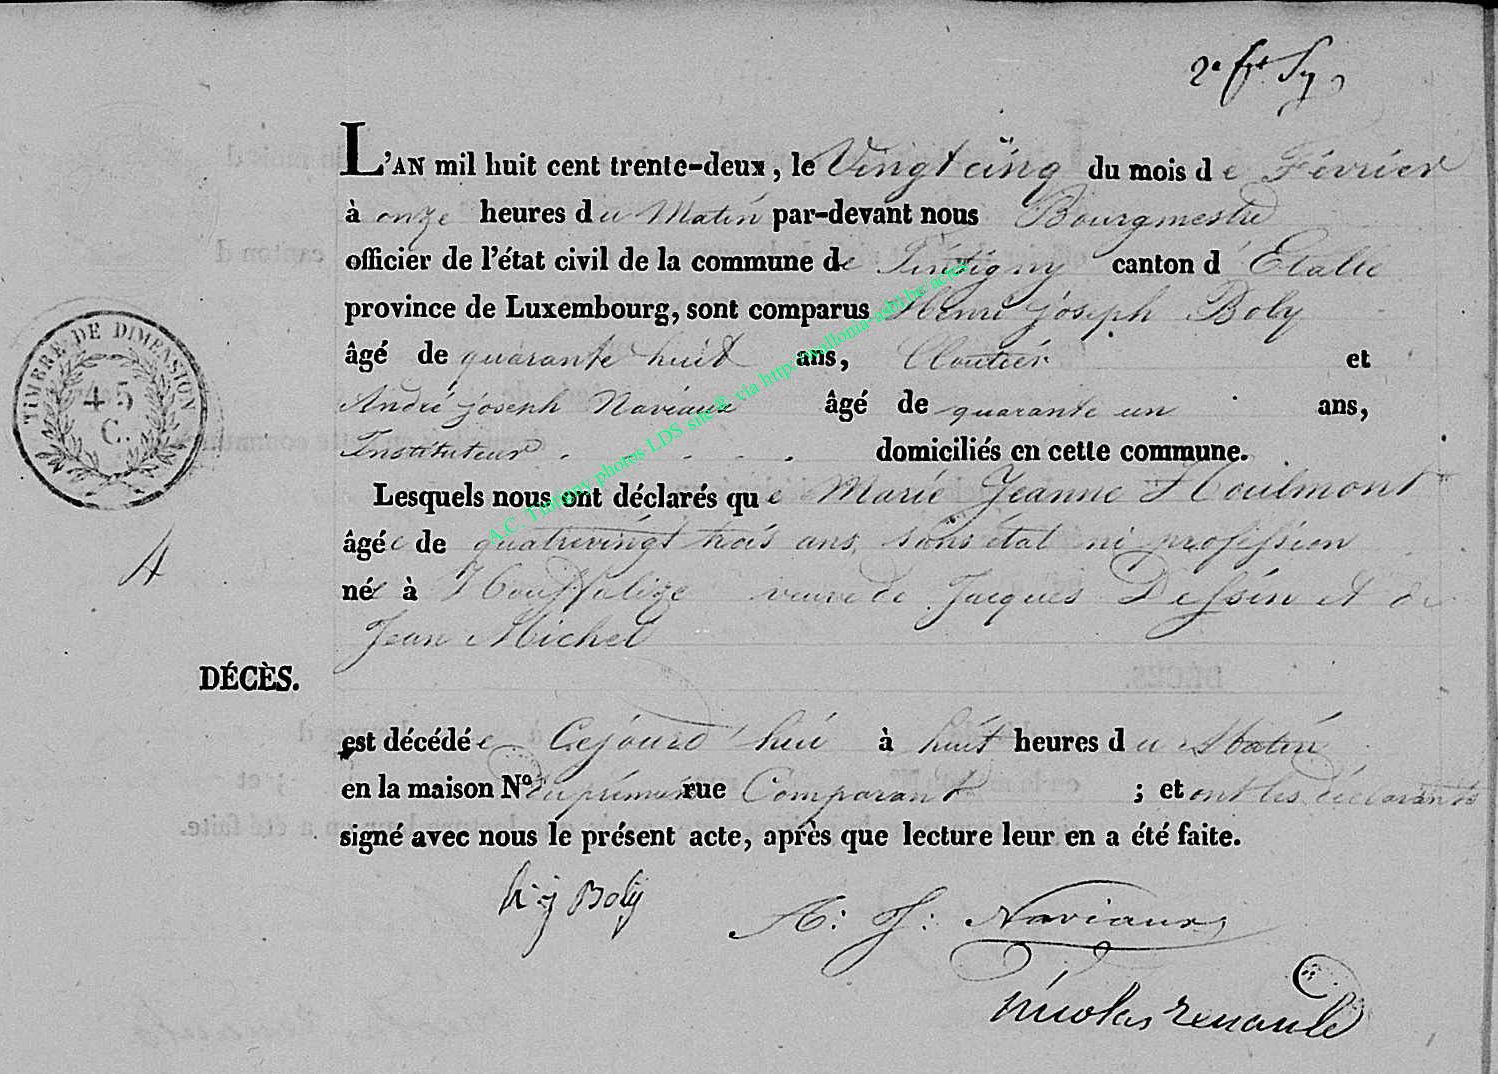 2e ft Sy
L'AN mil huit cent trente-deux, le Vingt cinq du mois de Février
à onze heures du Matin par-devant nous Bourgmestre
officier de l'état civil de la commune de Tintigny canton d'Etalle
province de Luxembourg, sont comparus Henri joseph Boly
âgé de quarante huit ans, Cloutier et
André joseph Naviaux âgé de quarante un ans,
Instituteur domiciliés en cette commune.
Lesquels nous ont déclarés que Marie Jeanne Houlmont
âgée de quatrevingt trois ans, sans état ni profession
née à Houffalize veuve de Jacques Dessin et de
Jean Michel
DÉCÈS.
est décédée Cejourd'hui à huit heures du Matin
en la maison No. du premier rue Comparant ; et ont les déclarants
signé avec nous le présent acte, après que lecture leur en a été faite.
h j Boly
A: J: Naviaux
Nicolas Renauld
TIMBRE DE DIMENSION
45
C.
A
A.C. Tintigny photos LDS site & via http://wallonia-asbl.be/actes